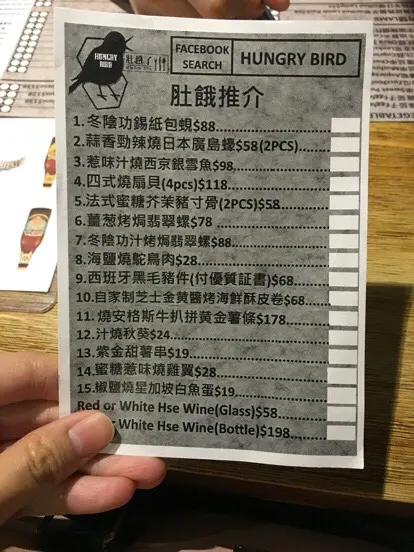 HUNGRY
BIRD
FACEBOOK
SEARCH
HUNGRY BIRD
肚餓推介
1. 冬陰功錫紙包蜆$88
2. 蒜香勁辣燒日本廣島蠔$58(2PCS)
3. 惹味汁燒西京銀雪魚$98
4. 四式燒扇貝(4pcs)$118
5. 法式蜜糖芥茉豬寸骨(2PCS)$58
6. 薑葱烤焗翡翠螺$78
7. 冬陰功汁烤焗翡翠螺$88
8. 海鹽燒鴕鳥肉$28
9. 西班牙黑毛豬件(付優質証書)$68
10.自家制芝士金黄醬烤海鮮酥皮卷$68
11. 燒安格斯牛扒拼黄金薯條$178
12. 汁燒秋葵$24
13. 紫金甜薯串$19
14. 蜜糖惹味燒雞翼$28
15. 椒鹽燒星加坡白魚蛋$19
Red or White Hse Wine(Glass)$58
or White Hse Wine(Bottle)$198